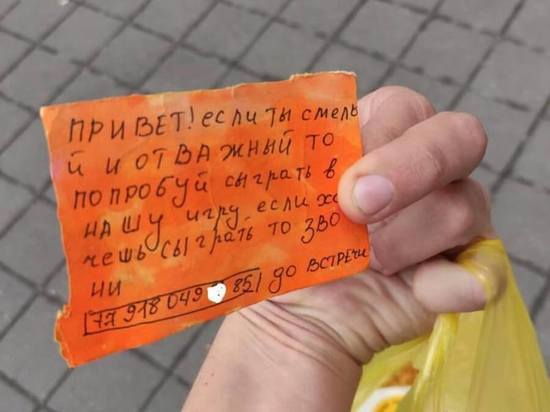 ПРИВЕТ! если ты смелы
й и ОТВАЖНЫЙ ТО
ПОПРОБУЙ СЫГРАТЬ В
НАШУ игру если хо
чешь СЫГРАТЬ ТО ЗВО
НИ
77 918 049 85 ДО ВСТРЕЧИ